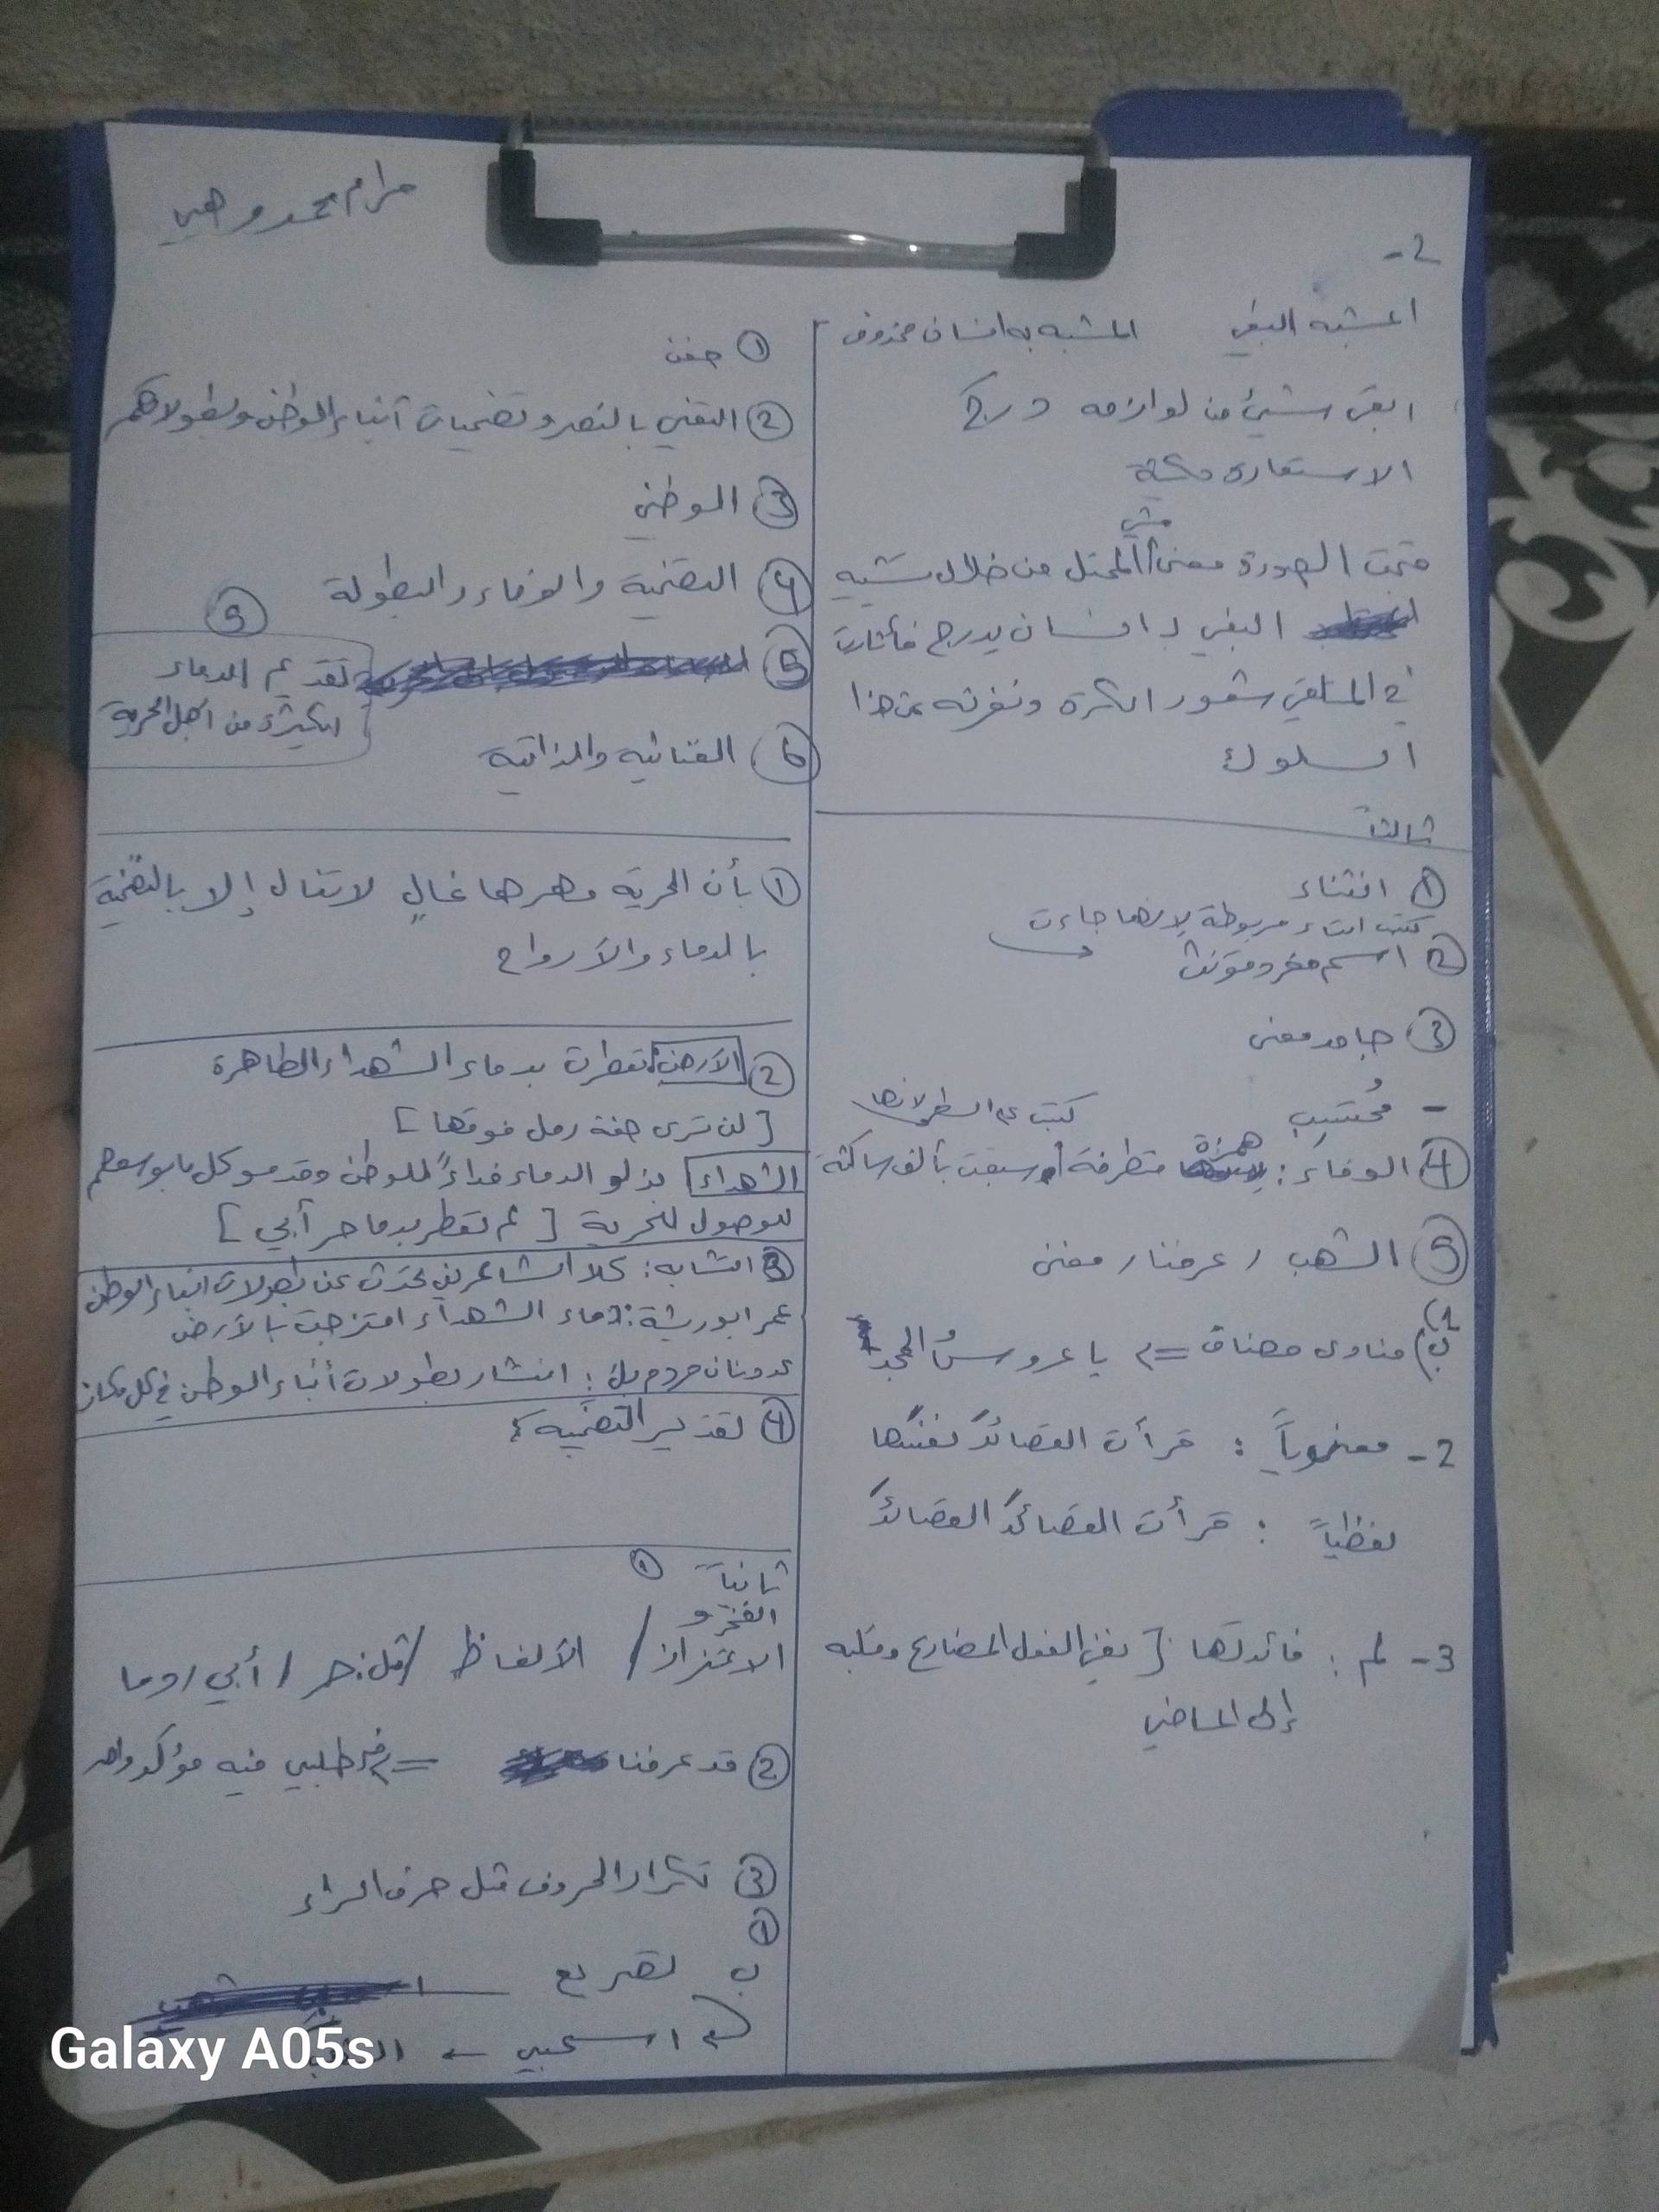 مرام محمد وهبي
-2
المشبه البغي المشبه به انسان محذوف
ابقى شيئ من لوازمه درج
الاستعارة مكنية
مشي
قبحت الصورة معنى المحتل من خلال تشبيه
البغي بـ انسان يدرج فأثارت
في المتلقي شعور الكره ونفرته من هذا
السلوك
ثالثاً
① انثناء
كتبت التاء مربوطة لإنها جاءت
② اسم مفرد مؤنث
③ جامد معنى
- مُحتسِب
كتبت على السطر لانها
④ الوفاءِ: همزة متطرفة سبقت بألف ساكنة
⑤ الشهب / عرفنا / معنى
ب) 1) منادى مضاف => يا عروسَ المجد
2- معنوياً : قرأت القصائدَ نفسَها
لفظياً : قرأت القصائدَ القصائدَ
3- لم : فائدتها : [نفي الفعل المضارع وقلبه
إلى الماضي
① حفن
② التغني بالنصر و تضحيات أبناء الوطن وبطولاتهم
③ الوطني
④ التضحية والوفاء والبطولة
⑤
⑤ تقديم الدماء
الكثيرة من أجل الحرية
⑥ الغنائيه والذاتيه
① بأن الحرية مهرها غالٍ لاتنال إلا بالتضحية
بالدماء والأرواح
② الأرض: تعطرت بدماء الشهداء الطاهرة
[لن تري حفنة رمل فوقها]
الشهداء بذلو الدماء فداءً للوطن وقدمو كل مابوسعهم
للوصول للحرية [لم تعطر بدما حر أبي]
③ التشابه: كلا الشاعرين تحدث عن بطولات ابناء الوطن
عمر ابو ريشة: دماء الشهداء امتزجت بالأرض
عدونان مردم بك: انتشار بطولات أبناء الوطن في كل مكان
④ تقدير التضحيه
ثانياً ①
الفخر و
الاعتزاز / الألفاظ / مثل: حر / أبي / دما
② قد عرفنا => خبر طلبي فيه مؤكد واحد
③ تكرار الحروف مثل حرف الراء
①
ب تصريع
اسحبي ←
Galaxy A05s